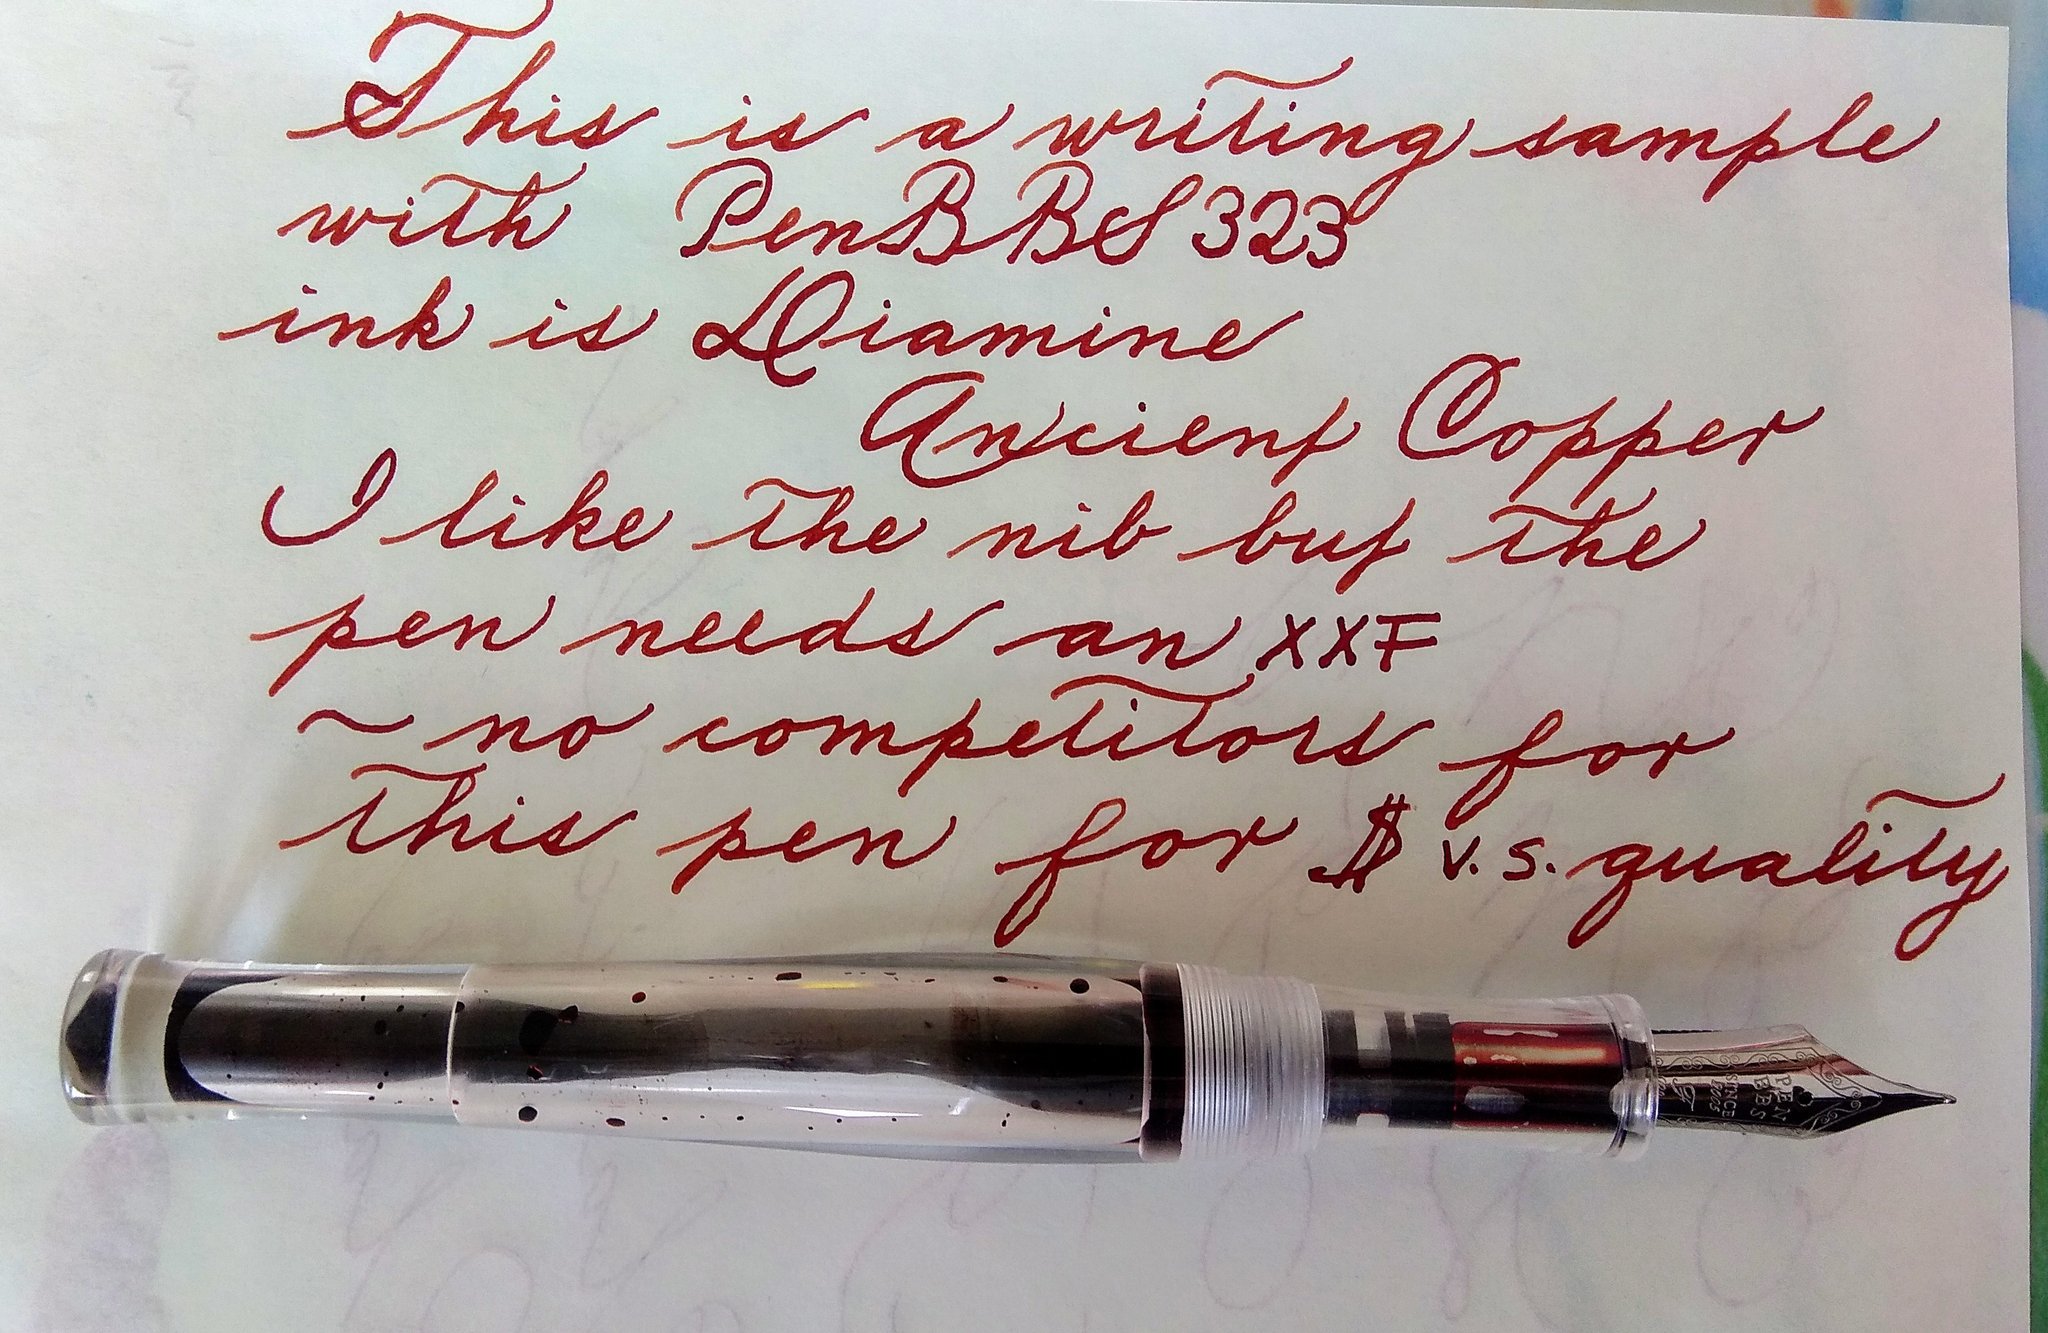 This is a writing sample
with PenBBS 323
ink is Diamine
Ancient Copper
I like the nib but the
pen needs an XXF
~ no competitors for
this pen for $ v.s. quality
PEN
BBS
SINCE
2005